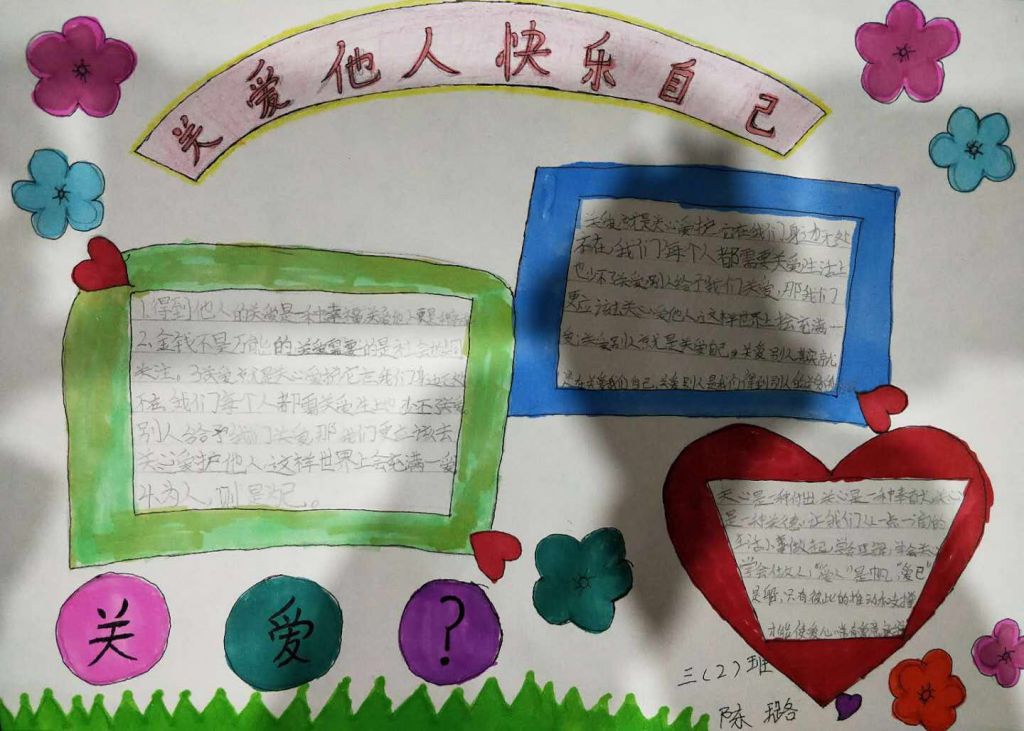 关爱他人快乐自己
1.得到他人的关爱是一种幸福,关爱他人更是
2.金钱不是万能的关爱需要的是社会
关注。3关爱就是关心爱护它在我们身边无处
不在,我们每个人都需关爱生上也少不了关爱
别人给予我们关爱那我们更应该去
关心爱护他人这样世界上会充满一爱
4.为人,则是为己。
关爱,就是关心爱护它在我们身边无处
不在,我们每个人都需要关爱,生活上
也少不了关爱别人给予我们关爱,那我们
更应该去关心爱他人这样世界上会充满一
爱;关爱别人就是关爱自己。关爱别人其实就
是在关爱我们自己,关爱别人是我们得到别人的关爱
关心是一种付出,关心是一种
是一种美德,让我们从一点一滴的
生活小事做起,学会
学会付出,"爱人"是"爱己"
是,只有彼此的推动和支撑
才能使爱心
关 爱 ?
三(2)班
陈璐